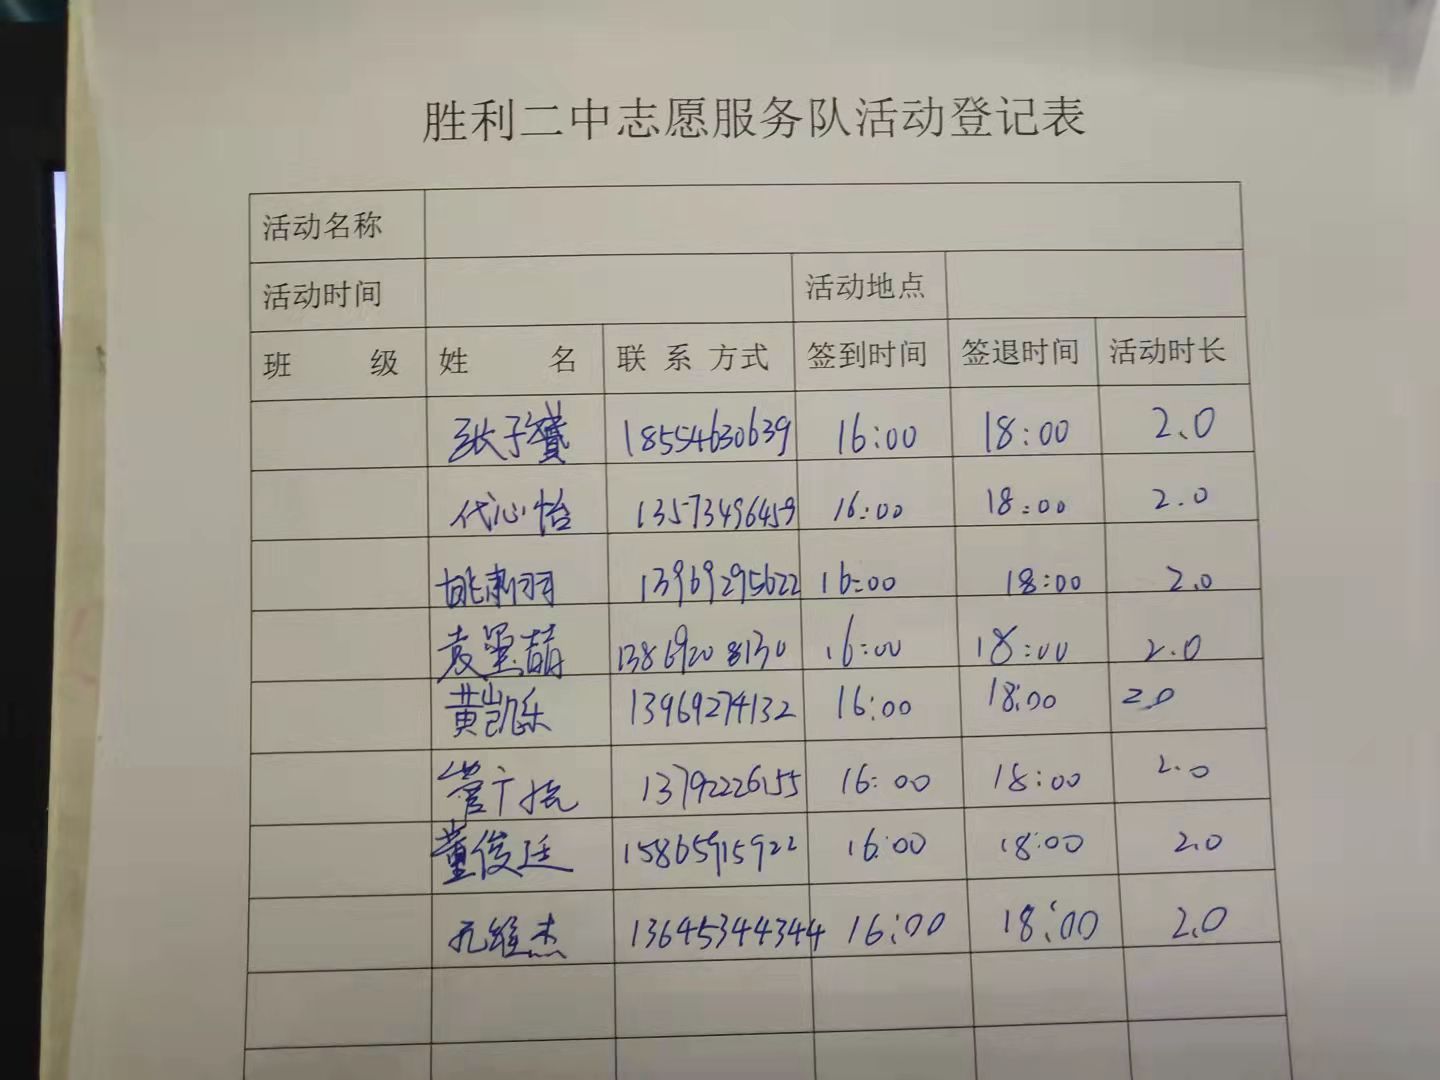 胜利二中志愿服务队活动登记表
活动名称
活动时间 活动地点
班 级 姓 名 联 系 方式 签到时间 签退时间 活动时长
张子 18554630639 16:00 18:00 2.0
代沁怡 13573496459 16:00 18:00 2.0
姚 羽 13969295622 16:00 18:00 2.0
袁 萌 13869208130 16:00 18:00 2.0
黄凯乐 13969274132 16:00 18:00 2.0
管广 13792226155 16:00 18:00 2.0
董俊廷 15865915922 16:00 18:00 2.0
孔维杰 13645344344 16:00 18:00 2.0